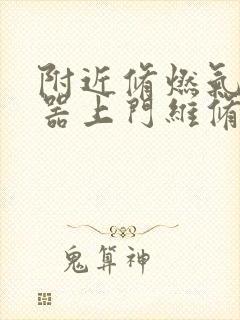 附近脩燃氣
器上門維脩
鬼算神